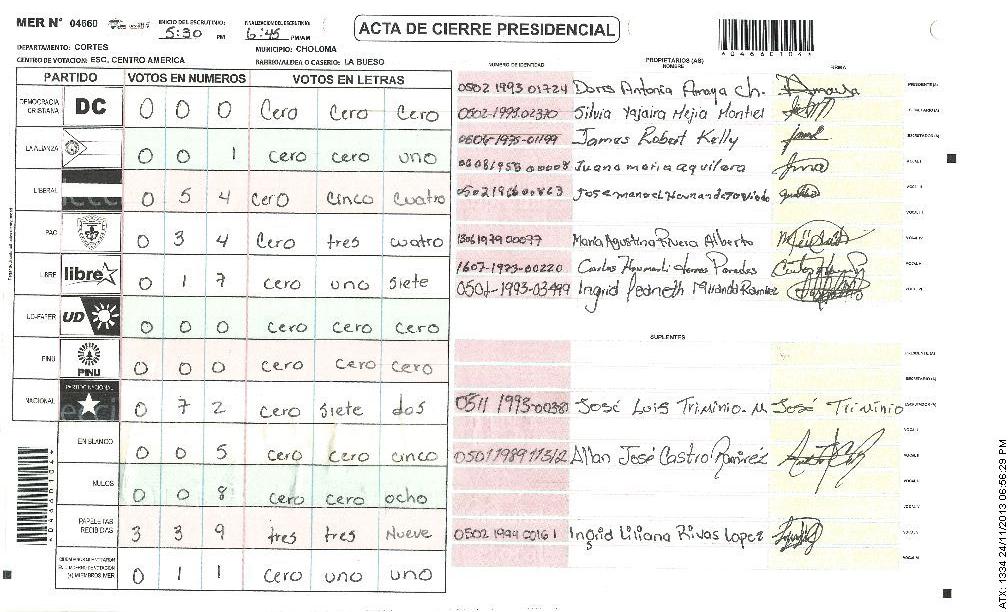 MER Nº 04660
INICIO DEL ESCRUTINIO:
5:30 PM
FINALIZACION DEL ESCRUTINIO:
6:45 PM/AM
ACTA DE CIERRE PRESIDENCIAL
DEPARTAMENTO: CORTES
MUNICIPIO: CHOLOMA
CENTRO DE VOTACION: ESC. CENTRO AMERICA
BARRIO/ALDEA O CASERIO: LA BUESO
PARTIDO VOTOS EN NUMEROS VOTOS EN LETRAS
DEMOCRACIA CRISTIANA DC 0 0 0 Cero Cero Cero
LA ALIANZA 0 0 1 cero cero uno
LIBERAL 0 5 4 cero cinco cuatro
PAC 0 3 4 Cero tres cuatro
LIBRE libre 0 1 7 cero uno siete
UD-FAPER UD 0 0 0 cero cero cero
PINU PINU 0 0 0 cero cero cero
NACIONAL PARTIDO NACIONAL 0 7 2 cero siete dos
EN BLANCO 0 0 5 cero cero cinco
NULOS 0 0 8 cero cero ocho
PAPELETAS RECIBIDAS 3 3 9 tres tres Nueve
(+) MIEMBROS MER 0 1 1 cero uno uno
NUMERO DE IDENTIDAD PROPIETARIOS (AS) NOMBRE FIRMA
0502 1993 01724 Doris Antonia Amaya Ch. PRESIDENTE(A)
0502-1993-02370 Silvia Yajaira Mejia Montiel SECRETARIO(A)
James Robert Kelly
Juana maria aguilera
05021966 00863
Maria Agustina Rivera Alberto
1607-1973-00220
0502-1993-03499 Ingrid Jeanneth Miranda Ramirez
SUPLENTES
PRESIDENTE (A)
SECRETARIO (A)
0511 1993-00380 José Luis Triminio. M José Triminio
Allan José Castro Ramirez
Ingrid Liliana Rivas Lopez
ATX: 1334 24/11/2013 06:56:29 PM